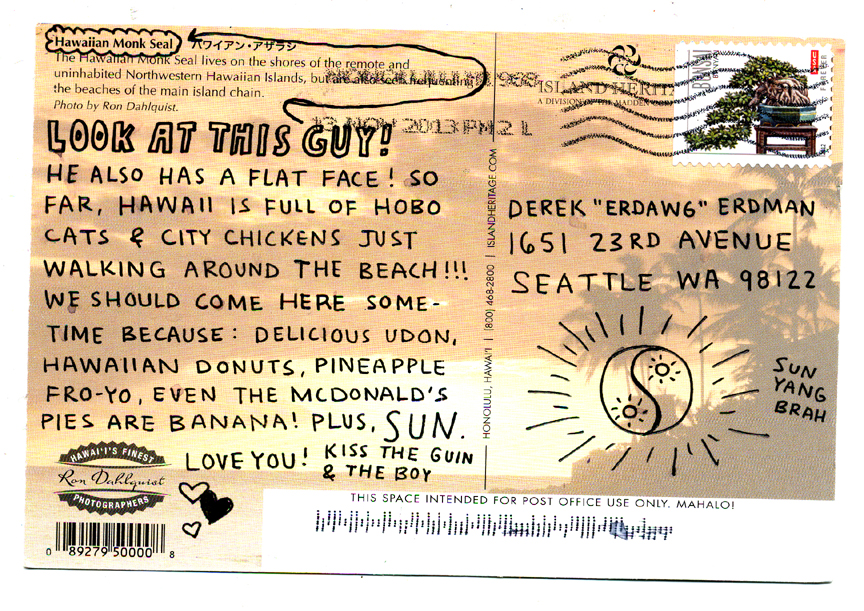 Hawaiian Monk Seal ハワイアン・アザラシ
The Hawaiian Monk Seal lives on the shores of the remote and
uninhabited Northwestern Hawaiian Islands, but are also seen frequenting
the beaches of the main island chain.
Photo by Ron Dahlquist.
LOOK AT THIS GUY!
HE ALSO HAS A FLAT FACE! SO
FAR, HAWAII IS FULL OF HOBO
CATS & CITY CHICKENS JUST
WALKING AROUND THE BEACH!!!
WE SHOULD COME HERE SOME-
TIME BECAUSE: DELICIOUS UDON,
HAWAIIAN DONUTS, PINEAPPLE
FRO-YO, EVEN THE MCDONALD'S
PIES ARE BANANA! PLUS, SUN.
LOVE YOU! KISS THE GUIN
& THE BOY
HAWAI'I'S FINEST
Ron Dahlquist
PHOTOGRAPHERS
0 89279 50000 8
HONOLULU, HAWAI'I | (800) 468-2800 | ISLANDHERITAGE.COM
13 NOV 2013 PM 2 L
ISLAND HERIT
A DIVISION OF THE MADDEN
BONSAI
FOREVER
DEREK "ERDAWG" ERDMAN
1651 23RD AVENUE
SEATTLE WA 98122
SUN
YANG
BRAH
THIS SPACE INTENDED FOR POST OFFICE USE ONLY. MAHALO!